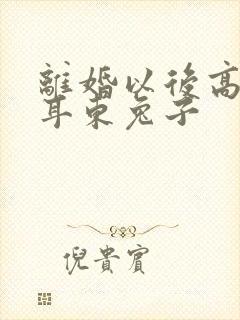 離婚以後高
耳東兔子
倪貴賓